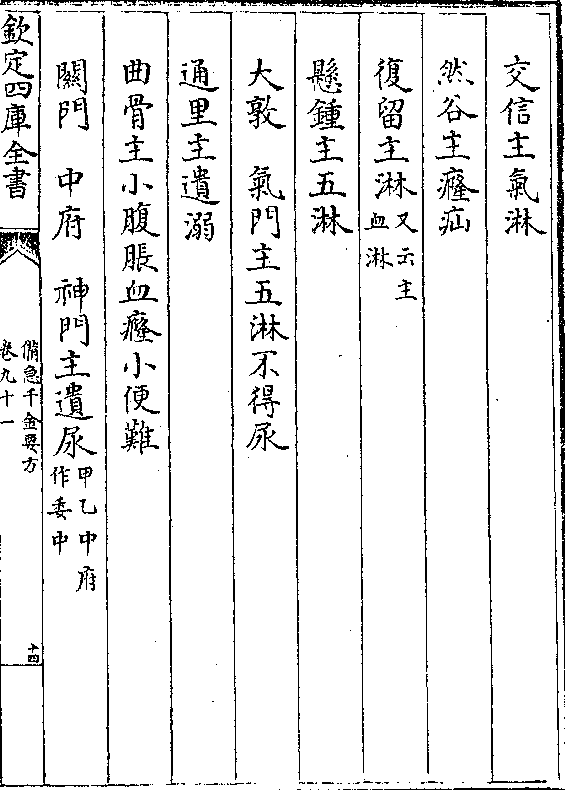 交信主氣淋
然谷主癃疝
復留主淋又云主血淋
懸鍾主五淋
大敦 氣門主五淋不得尿
通里主遺溺
曲骨主小腹脹血癃小便難
關門 中府 神門主遺尿甲乙中府作委中
欽定四庫全書
備急千金要方
卷九十一
十四